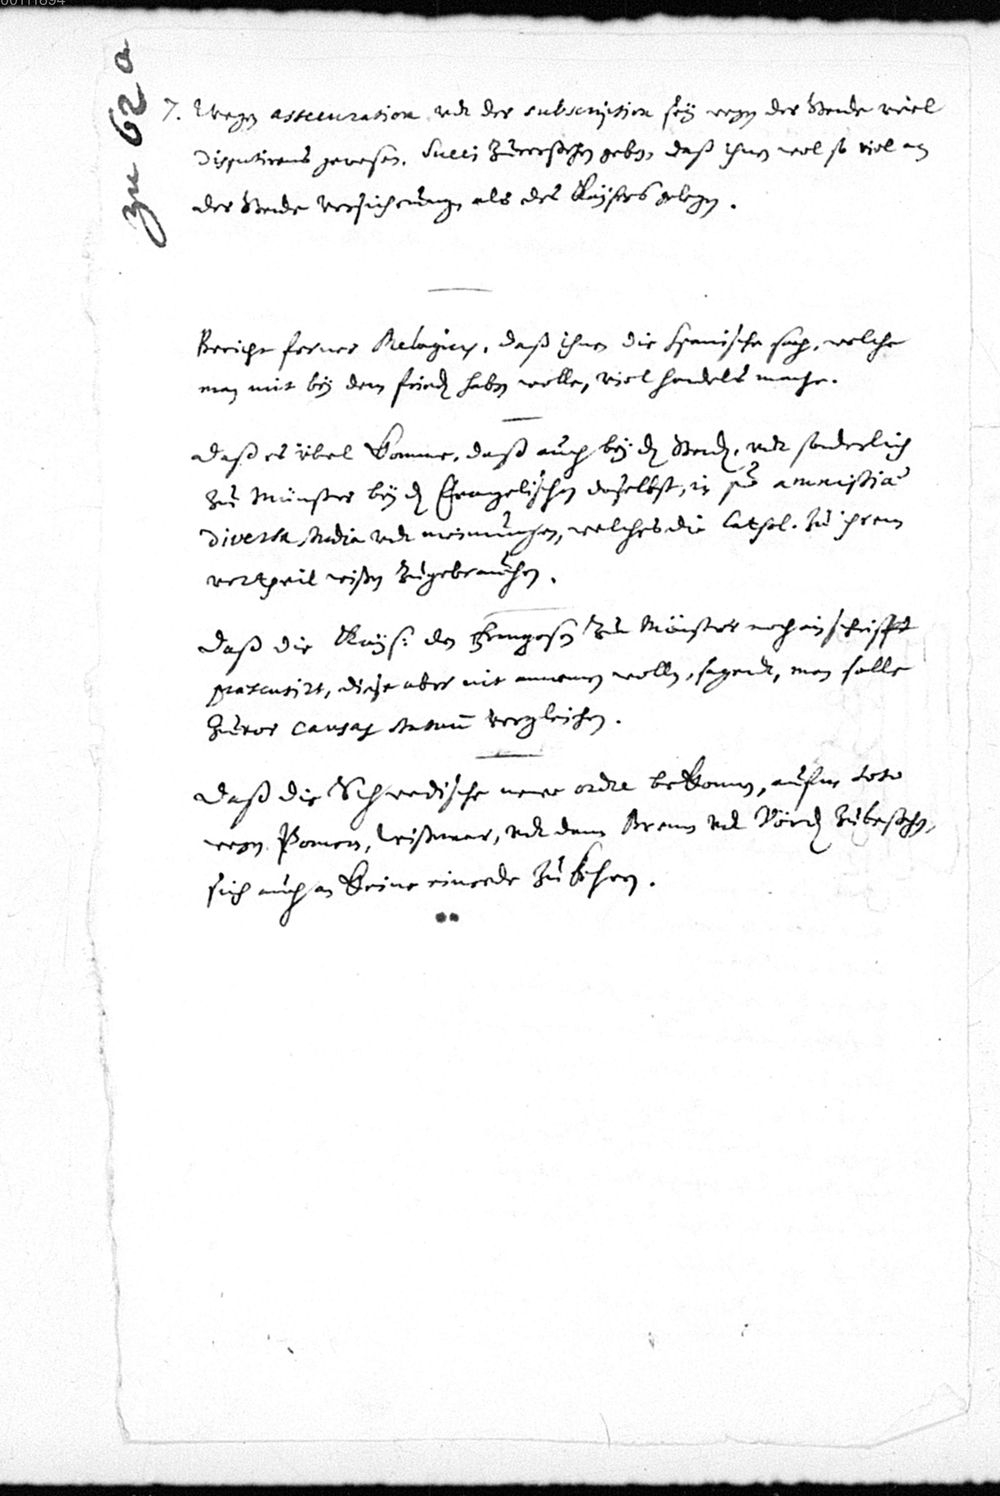 00111894
zu 62 a
7. Wegen assecuration vnd der subscription sey wegen der Stende viel
disputirens gewesen. Sueci zuuerstehen geben, daß ihnen wol so viel an
der Stende versicherung, als des Kaysers gelegen.
Bericht ferner Relation, daß ihnen die Spanische sach, welche
man mit bey dem frieden haben wolle, viel handels mache.
daß es übel komme, daß auch bey den Stenden, vnd sonderlich
zu Münster bey den Evangelischen daselbst, in puncto amnistiae
diversa studia vnd meinungen, welches die Cathol. zu ihrem
vortheil wißen zugebrauchen.
daß die Kays: den Franzosen zu Münster noch ein schrifft
praesentirt, diese aber nit annemen wollen, sagend, man solle
zuvor causam statuum vergleichen.
daß die Schwedische newe ordre bekommen, aufm toto
wegen Pomern, Wißmar, vnd dann Bremen vnd Vörden zubestehen,
sich auch an keine einrede zu kehren.